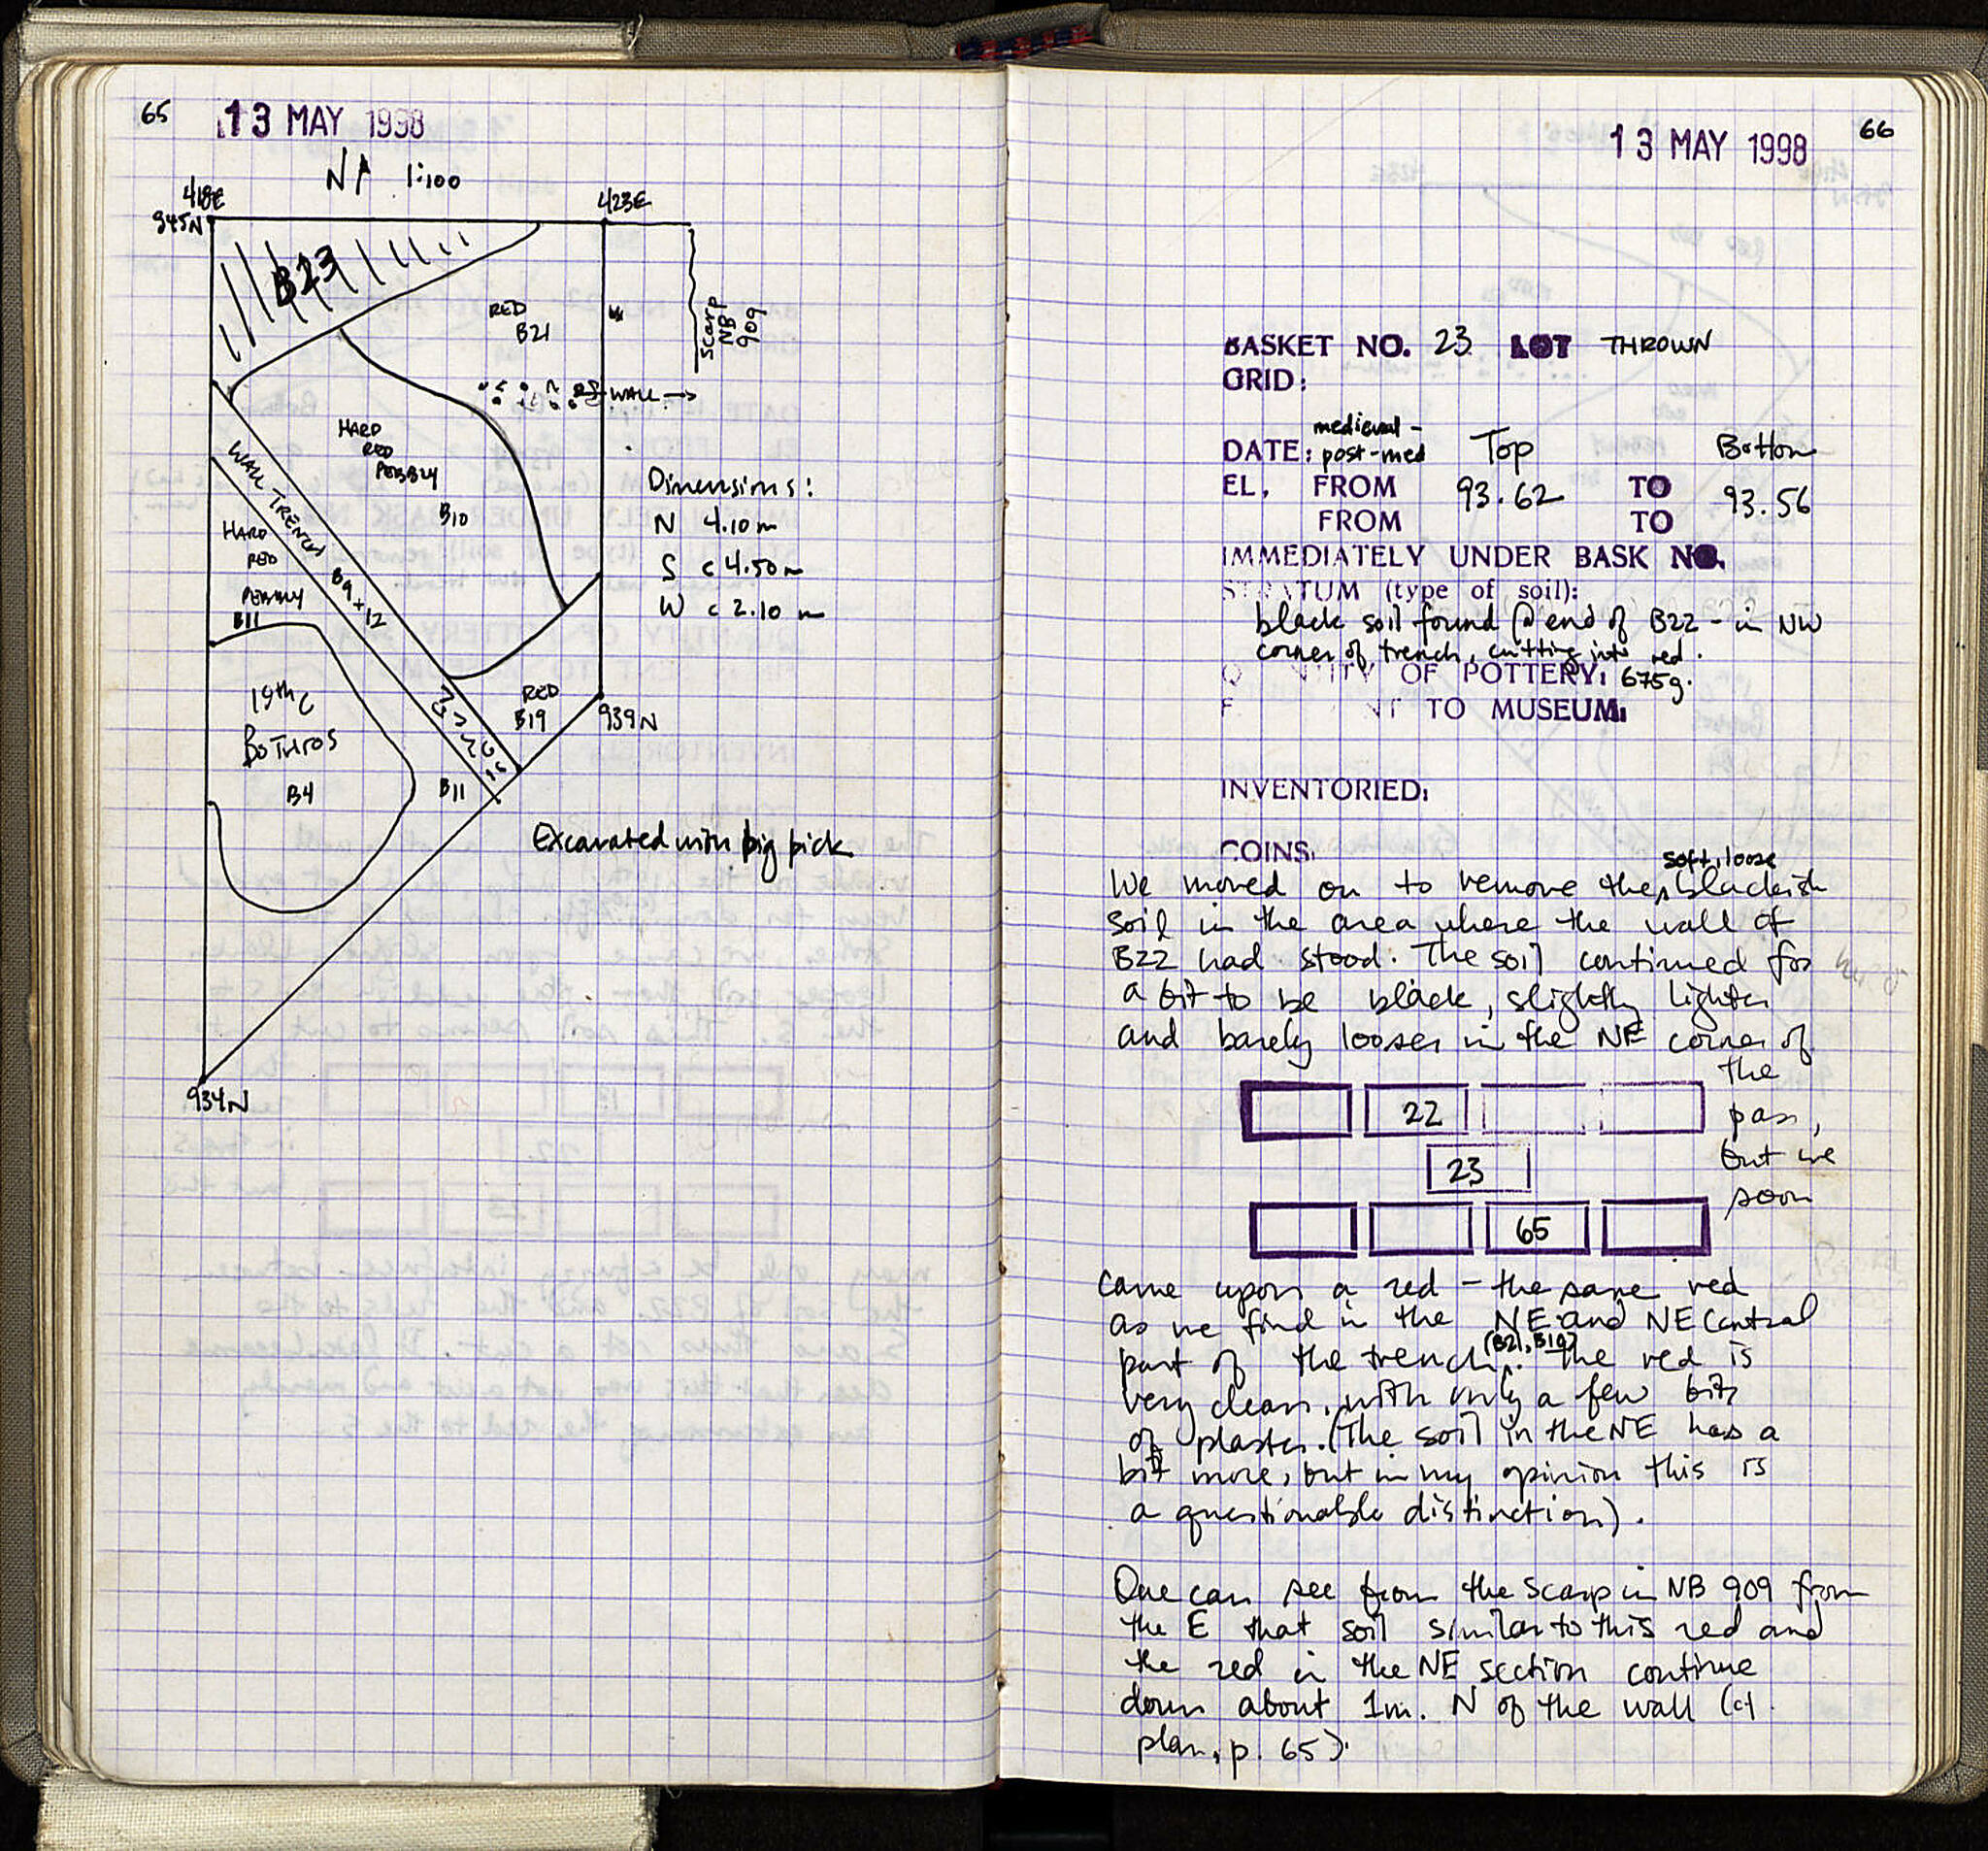 65
13 MAY 1998
N 1:100
418E
945N
423E
B23
RED
B21
Scarp
NB
909
WALL →
HARD
RED
PEBBLY
B10
WALL TRENCH B9+12
HARD
RED
PEBBLY
B11
Dimensions:
N 4.10 m
S c 4.50 m
W c 2.10 m
19th C
BOTHROS
B4
RED
B19
939N
B11
Excavated with big pick
934N
66
13 MAY 1998
BASKET NO. 23 LOT THROWN
GRID:
medieval -
DATE: post-med Top Bottom
EL. FROM 93.62 TO 93.56
FROM TO
IMMEDIATELY UNDER BASK NO.
STRATUM (type of soil):
black soil found @ end of B22 - in NW
corner of trench, cutting into red.
Q NTITY OF POTTERY: 675g.
F NT TO MUSEUM:
INVENTORIED:
COINS:
soft, loose
We moved on to remove the blackish
soil in the area where the wall of
B22 had stood. The soil continued for
a bit to be black, slightly lighter
and barely looser in the NE corner of
the
22 pass,
but we
23
soon
65
came upon a red - the same red
as we find in the NE and NE Central
part of the trench (B21, B19). The red is
very clean, with only a few bits
of plaster. (The soil in the NE has a
bit more, but in my opinion this is
a questionable distinction).
One can see from the scarp in NB 909 from
the E that soil similar to this red and
the red in the NE section continue
down about 1m. N of the wall (cf.
plan, p. 65).